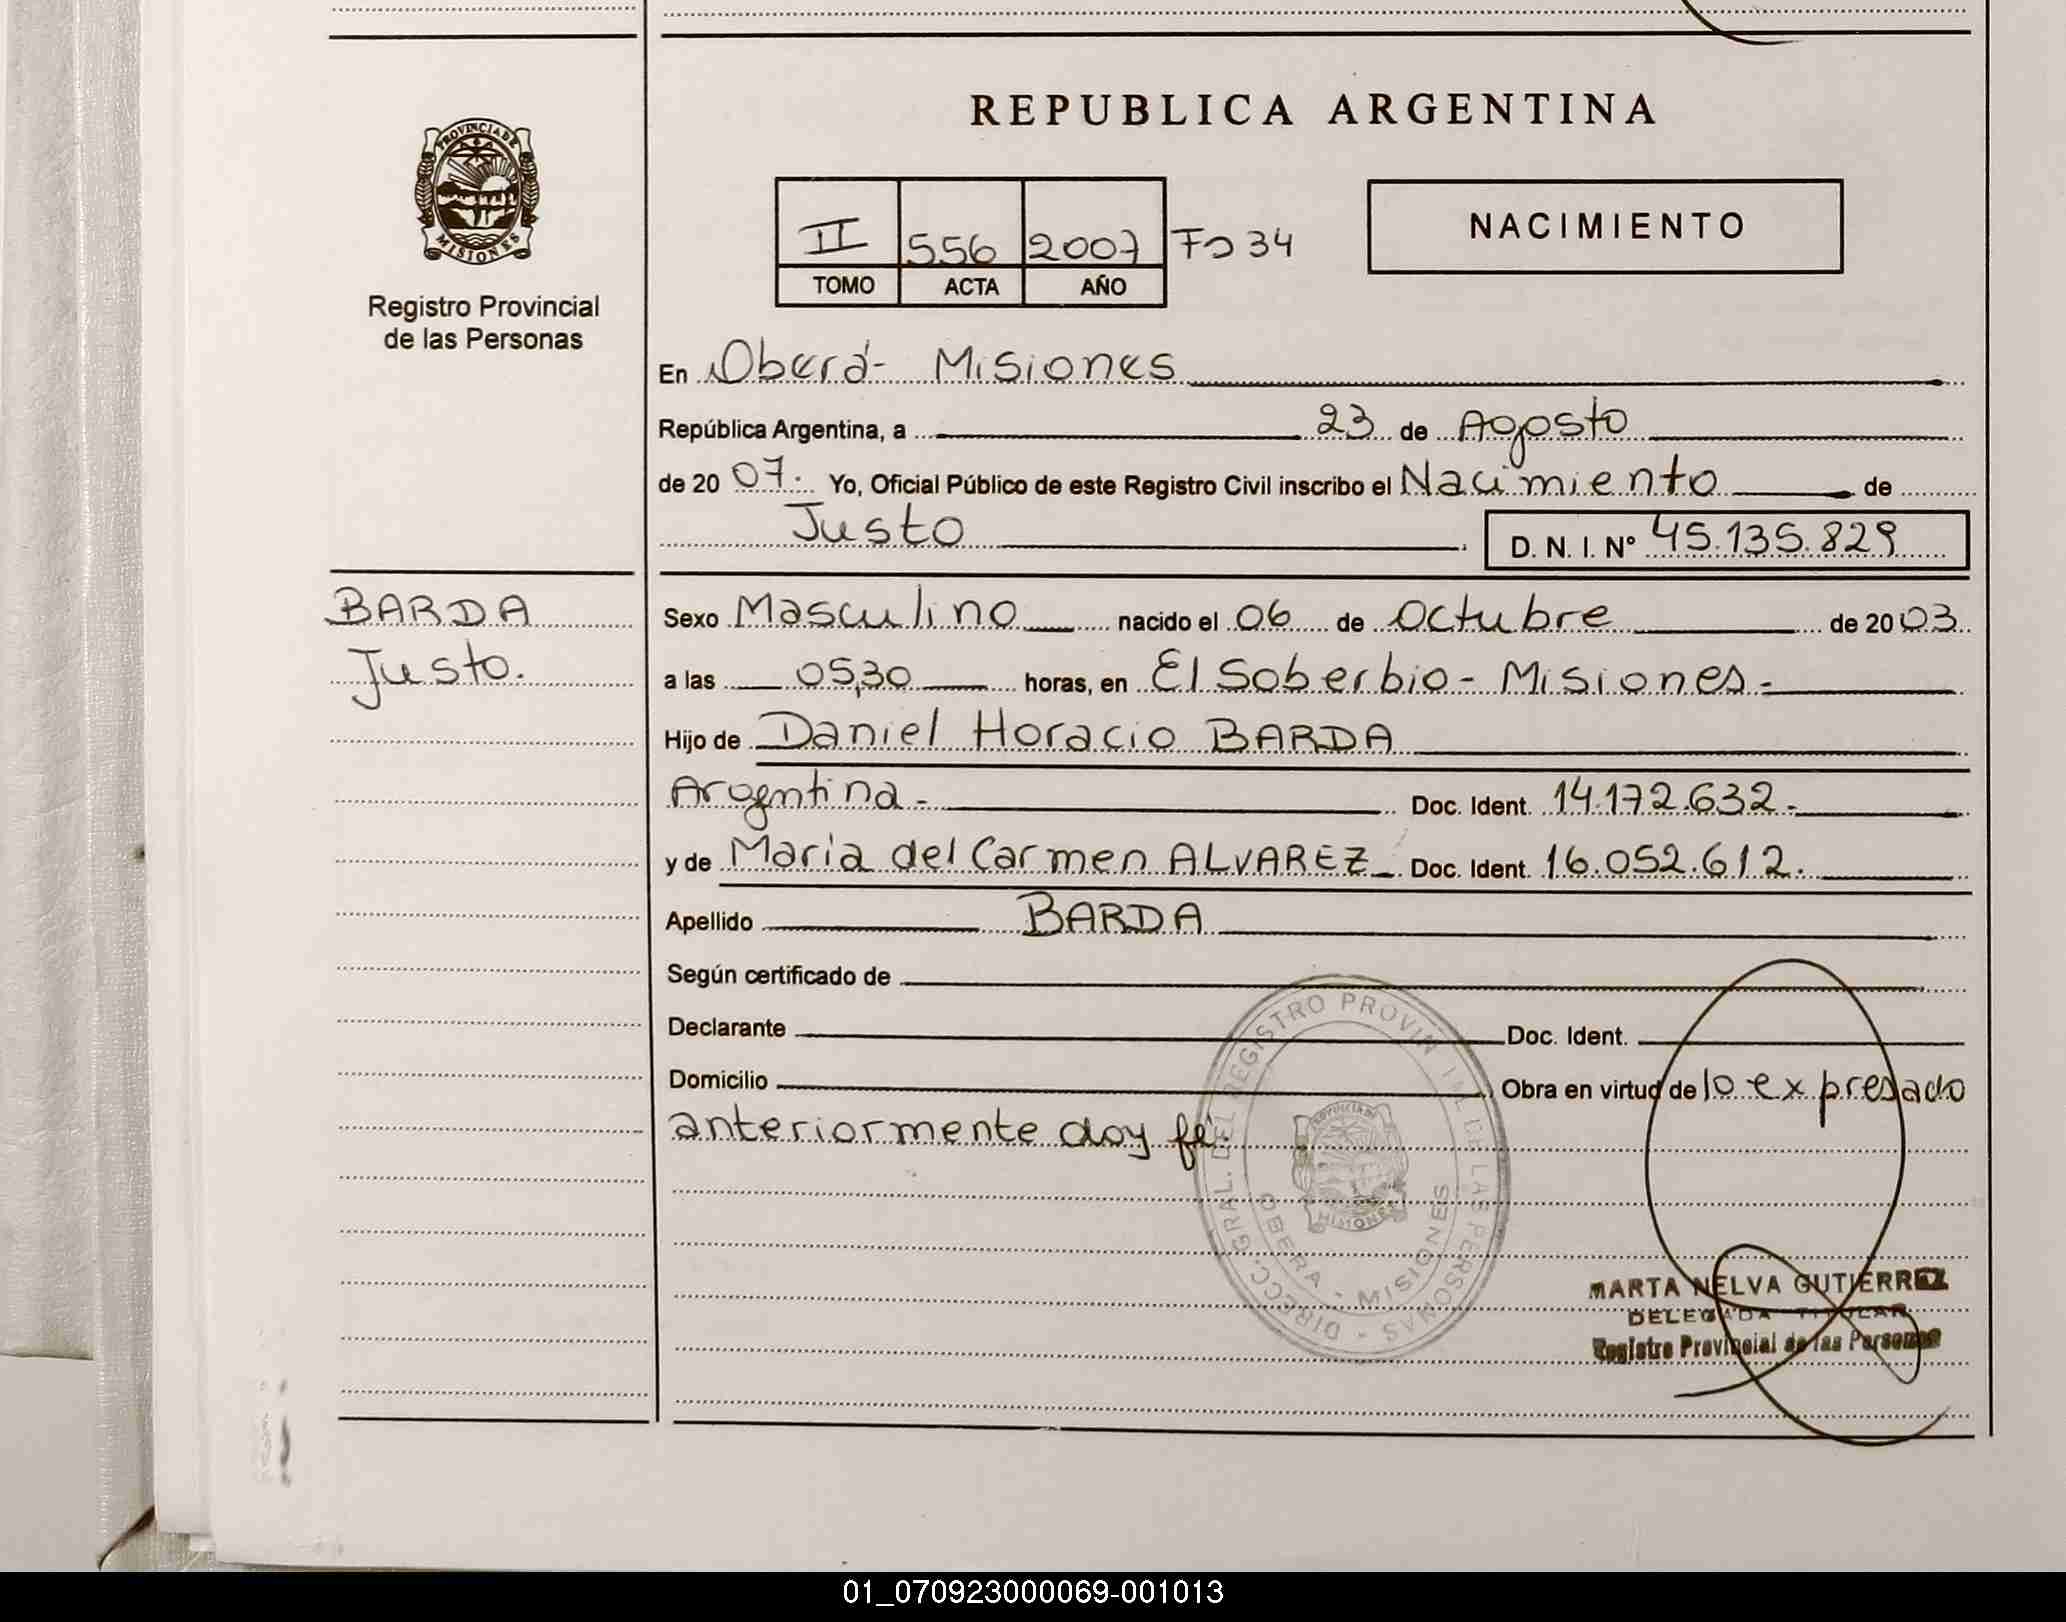 REPUBLICA ARGENTINA
PROVINCIA DE
MISIONES
Registro Provincial
de las Personas
II 556 2007 Fº 34
TOMO ACTA AÑO
NACIMIENTO
En Oberá - Misiones
República Argentina, a 23 de Agosto
de 2007. Yo, Oficial Público de este Registro Civil inscribo el Nacimiento de
Justo D. N. I. Nº 45.135.829
BARDA
Justo.
Sexo Masculino nacido el 06 de Octubre de 2003
a las 05,30 horas, en El Soberbio - Misiones -
Hijo de Daniel Horacio BARDA
Argentina - Doc. Ident. 14.172.632.-
y de Maria del Carmen ALVAREZ Doc. Ident. 16.052.612.
Apellido BARDA
Según certificado de
Declarante Doc. Ident.
Domicilio Obra en virtud de lo expresado
anteriormente doy fé.
DIRECC. GRAL. DEL REGISTRO PROVIN IAL DE LAS PERSONAS -
OBERA - MISIONES
MISIONES
MARTA NELVA GUTIERREZ
DELEGADA TITULAR
Registro Provincial de las Personas
01_070923000069-001013